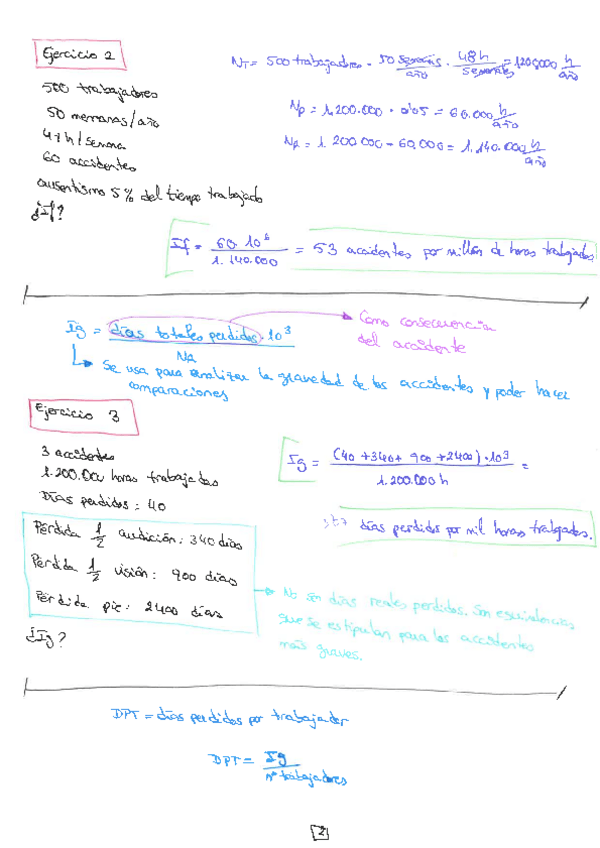 Ejercicio 2
500 trabajadores
50 semanas/año
47h/semana
60 accidentes
ausentismo 5% del tiempo trabajado
¿If?
N_T = 500 trabajadores · 50 semanas/año · 48h/semanales = 1200000 h/año
Np = 1.200.000 · 0'05 = 60.000 h/año
NR = 1.200.000 - 60.000 = 1.140.000 h/año
If = 60·10⁶ / 1.140.000 = 53 accidentes por millón de horas trabajadas
Ig = días totales perdidos · 10³ / NR
Como consecuencia
del accidente
Se usa para analizar la gravedad de los accidentes y poder hacer
comparaciones
Ejercicio 3
3 accidentes
1.200.000 horas trabajadas
Días perdidos: 40
Pérdida 1/2 audición: 340 días
Pérdida 1/2 visión: 900 días
Pérdida pie: 2400 días
¿Ig?
Ig = (40 + 340 + 900 + 2400) · 10³ / 1.200.000 h =
días perdidos por mil horas trabajadas.
No son días reales perdidos. Son equivalencias
que se estipulan para los accidentes
más graves.
DPT = días perdidos por trabajador
DPT = Ig / nº trabajadores
2